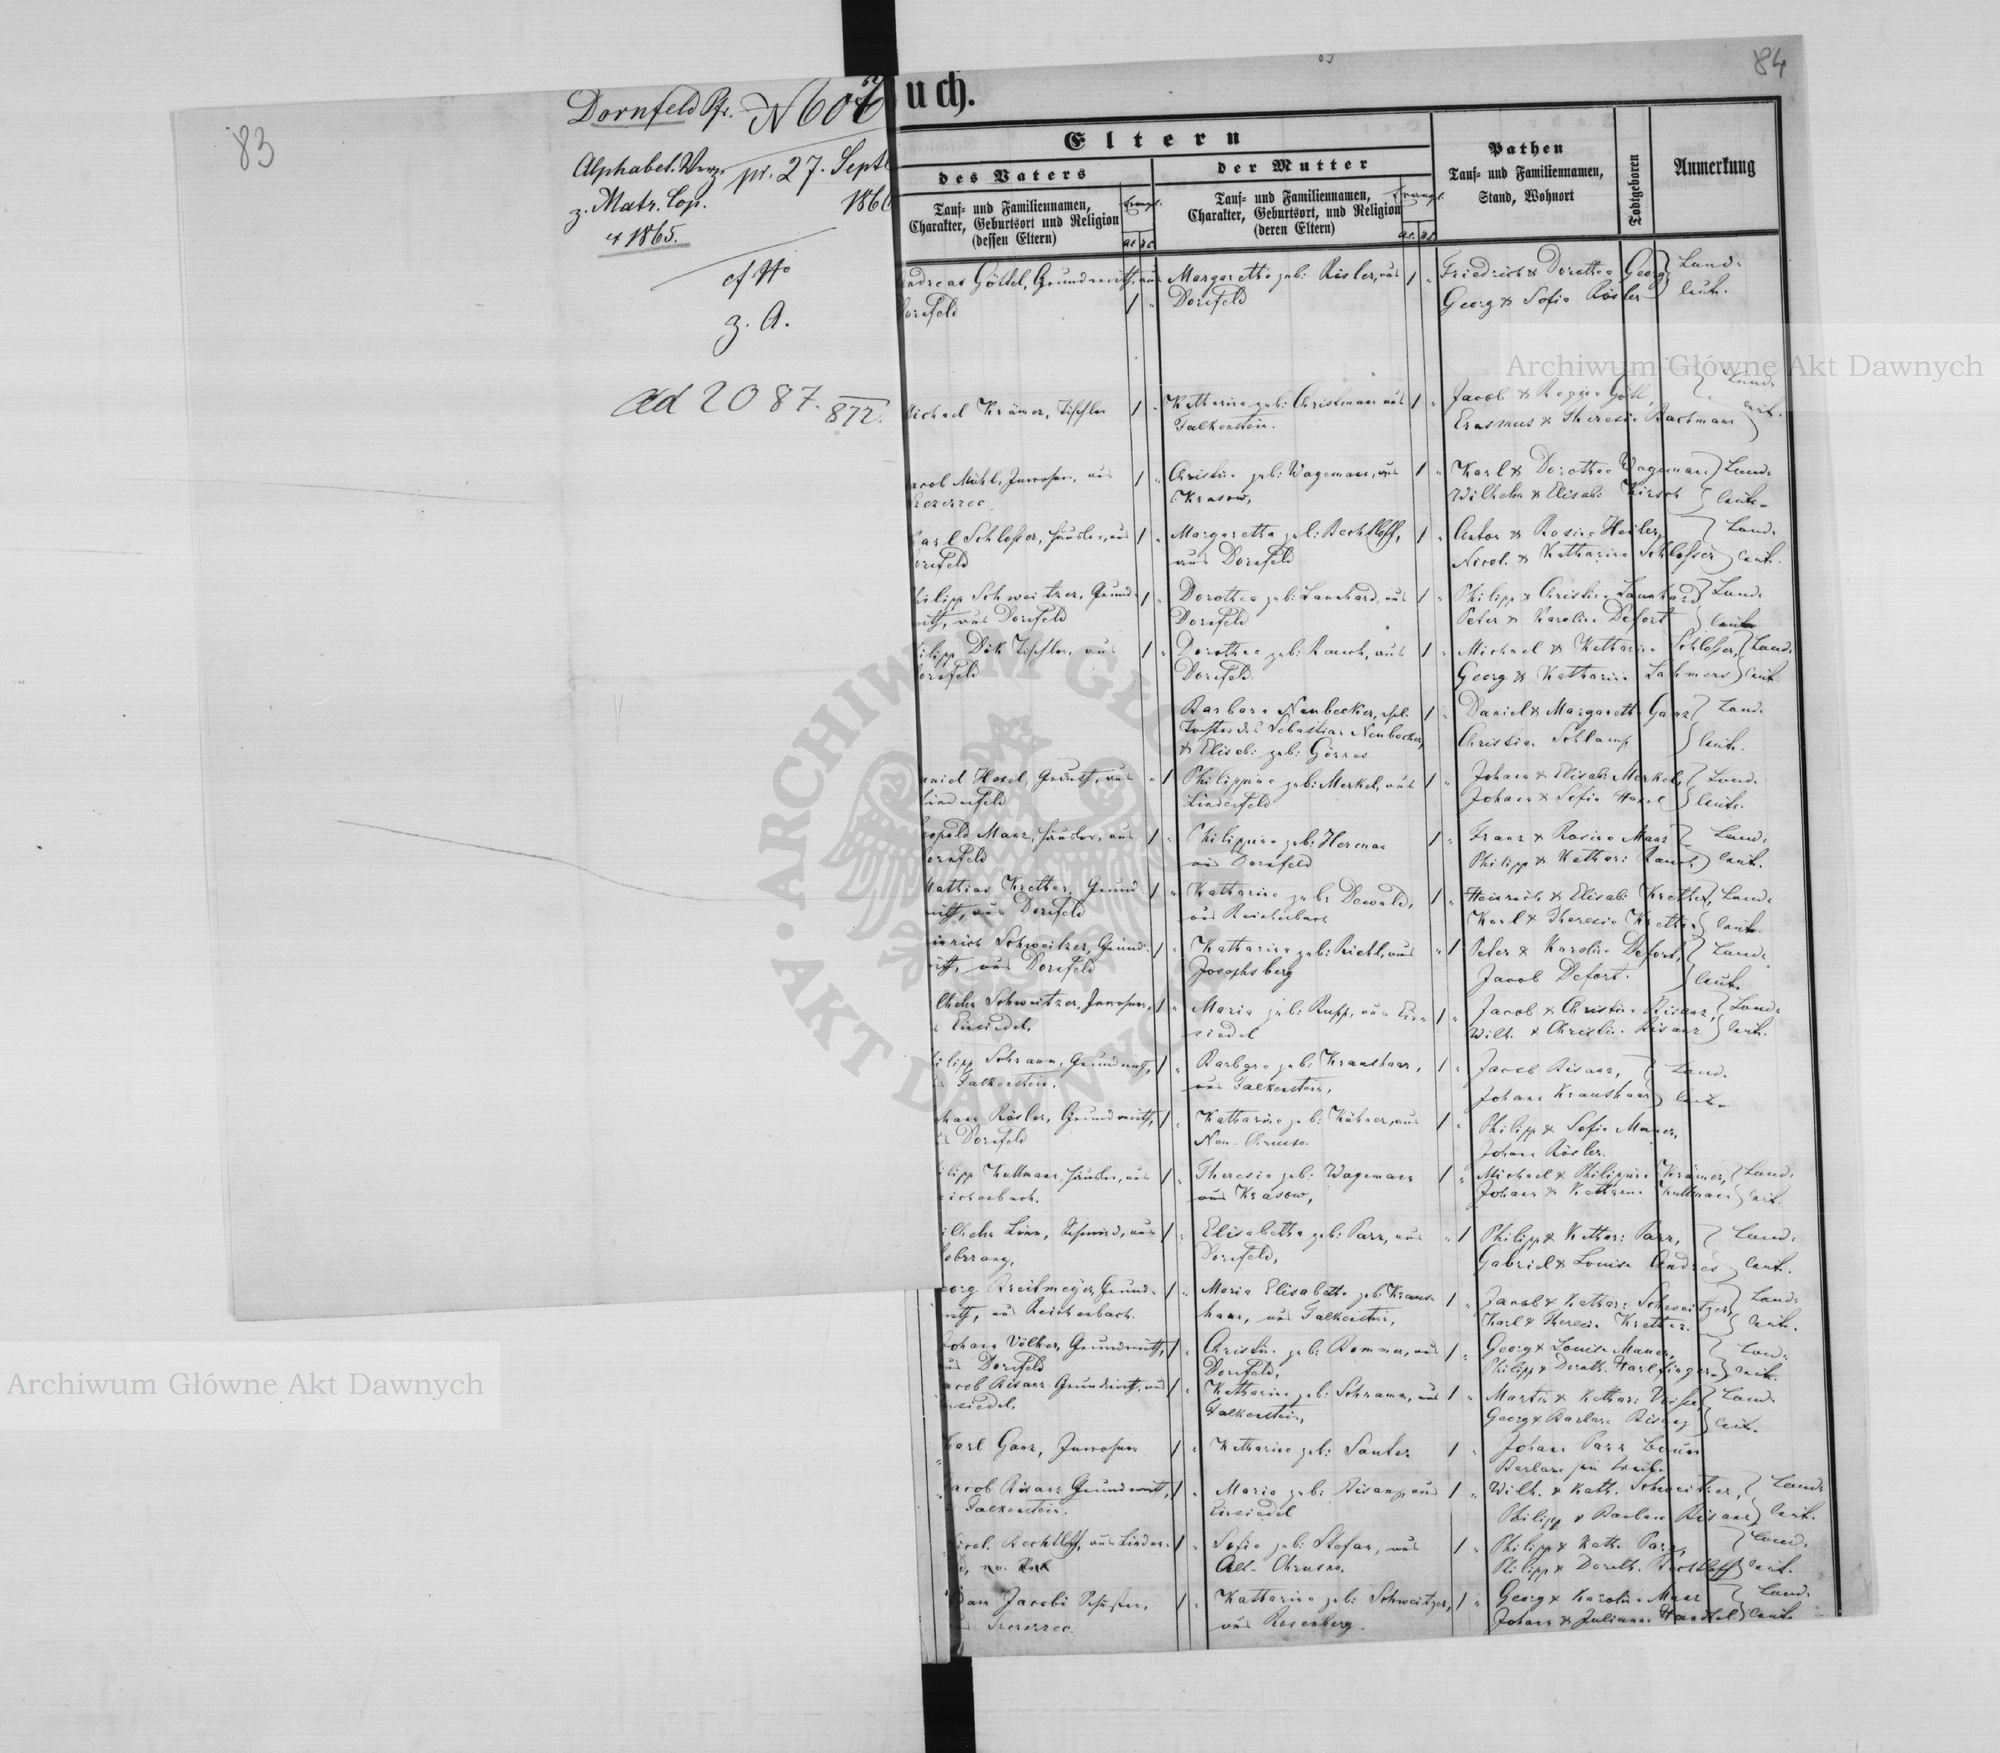 83
Dornfeld Pfr. N 607
Alphabet. Verz.
z. Matr. Cop.
1865.
pr. 27. Septb
186
z. A.
ad 2087.
872.
84
uch.
Eltern
des Vaters
der Mutter
Pathen
Tauf- und Familiennamen,
Stand, Wohnort
Todtgeboren
Anmerkung
Tauf- und Familiennamen,
Charakter, Geburtsort und Religion
(dessen Eltern)
Evangl.
Tauf- und Familiennamen,
Charakter, Geburtsort, und Religion
(deren Eltern)
Evangl.
ndreas Göttel, Grundwirth, aus
ornfeld
Margaretha geb: Rösler, aus
Dornfeld
Friedrich & Dorothea Georg
Georg & Sofie Rösler
Land-
leute.
ichael Krämer, Tischler
Katharina geb: Christmann aus
Falkenstein.
Jacob & Regina Göttl,
Erasmus & Theresia Bachmann
Land-
leute.
acob Mühl, Inwohner, aus
Szczerzec
Christine geb: Wagemann, aus
Krasow,
Karl & Dorothea Wagemann
Wilhelm & Elisab: Kirsch
Land-
leute
arl Schlosser, Häusler, aus
ornfeld
Margaretha geb: Bechtloff,
aus Dornfeld
Anton & Rosina Heiler,
Nicol. & Katharina Schlosser
Land-
leute.
hilipp Schweitzer, Grund-
wirth, aus Dornfeld
Dorothea geb: Launhard, aus
Dornfeld
Philipp & Christine Launhard
Peter & Karoline Defort
Land-
leute
ilipp Dök Tischler, aus
ornfeld
Dorothea geb: Rauch, aus
Dornfeld
Michael & Katharina Schlosser,
Georg & Katharina Lahmers
Land-
leute
Barbara Neubecker, ehel.
Tochter des Sebastian Neubecker,
& Elisab: geb: Görres
Daniel & Margareth. Ganz
Christian Schlamp
Land-
leute.
aniel Hexel, Grdwth, aus
Lindenfeld
Philippine geb: Merkel, aus
Lindenfeld
Johann & Elisab: Merkel,
Johann & Sofie Hexel
Land-
leute.
eopold Manz, Häusler, aus
ornfeld
Philippine geb: Herman
aus Dornfeld
Franz & Rosina Manz
Philipp & Kathar: Rauch
Land-
leute.
athias Krether, Grund-
wirth, aus Dornfeld
Katharina geb: Dewald,
aus Reichenbach
Heinrich & Elisab: Krether,
Karl & Theresia Krether
Land-
leute.
inrich Schweitzer, Grund-
wirth, aus Dornfeld
Katharina geb: Riehl, aus
Josephsberg
Peter & Karoline Defort,
Jacob Defort.
Land-
leute.
ilhelm Schweitzer, Inwohner,
Einsiedel.
Maria geb: Rupp, aus Ein-
siedel
Jacob & Christine Bisanz,
Wilh. & Christine Bisanz
Land-
leute.
ilipp Schramm, Grundwirth,
Falkenstein.
Barbara geb: Kraushaar,
aus Falkenstein,
Jacob Bisanz,
Johann Kraushaar
Land-
leute
ohann Rösler, Grundwirth,
Dornfeld
Katharina geb: Kühner, aus
Neu-Chrusno
Philipp & Sofie Mauer,
Johann Rösler.
ilipp Kullmann Häusler, aus
eichenbach.
Theresia geb: Wagemann
aus Krasow,
Michael & Philippine Krämer,
Johann & Katharina Kullmann
Land-
leute.
ilhelm Linn, Schmied, aus
Elisabetha geb: Parr, aus
Dornfeld,
Philipp & Kathar: Parr,
Gabriel & Louise Andres
Land-
leute.
eorg Breitmeyer, Grund-
wirth, aus Reichenbach.
Maria Elisabetha geb: Kraus-
haar, aus Falkenstein,
Jacob & Kathar: Schweitzer,
Karl & Theresia Krether.
Land-
leute.
Johann Völker, Grundwirth,
aus Dornfeld
Christine geb: Bommer, aus
Dornfeld,
Georg & Louise Mauer,
Philipp & Doroth. Harlfinger
Land-
leute.
acob Bisanz Grundwirth, aus
insiedel.
Katharina geb: Schramm, aus
Falkenstein,
Martin & Kathar:
Georg & Barbara Bisanz
Land-
leute.
Karl Ganz, Inwohner
Katharina geb: Sauter
Johann Parr
Barbara sein Weib.
Jacob Bisanz Grundwirth,
Falkenstein.
Maria geb: Bisanz, aus
Einsiedel
Wilh. & Kath. Schweitzer,
Philipp & Barbara Bisanz
Land-
leute.
icol. Bechtloff, aus Linden-
Sofie geb: Stefan, aus
Alt-Chrusno,
Philipp & Kath. Parr,
Philipp & Doroth. Bechtloff
Land-
leute.
Jacobi Schuster,
Szczerzec.
Katharina geb: Schweitzer,
aus Rosenberg.
Georg & Karoline Manz
Johann & Juliana Haechel
Land-
leute
Archiwum Główne Akt Dawnych
Archiwum Główne Akt Dawnych
ARCHIWUM GŁÓWNE AKT DAWNYCH